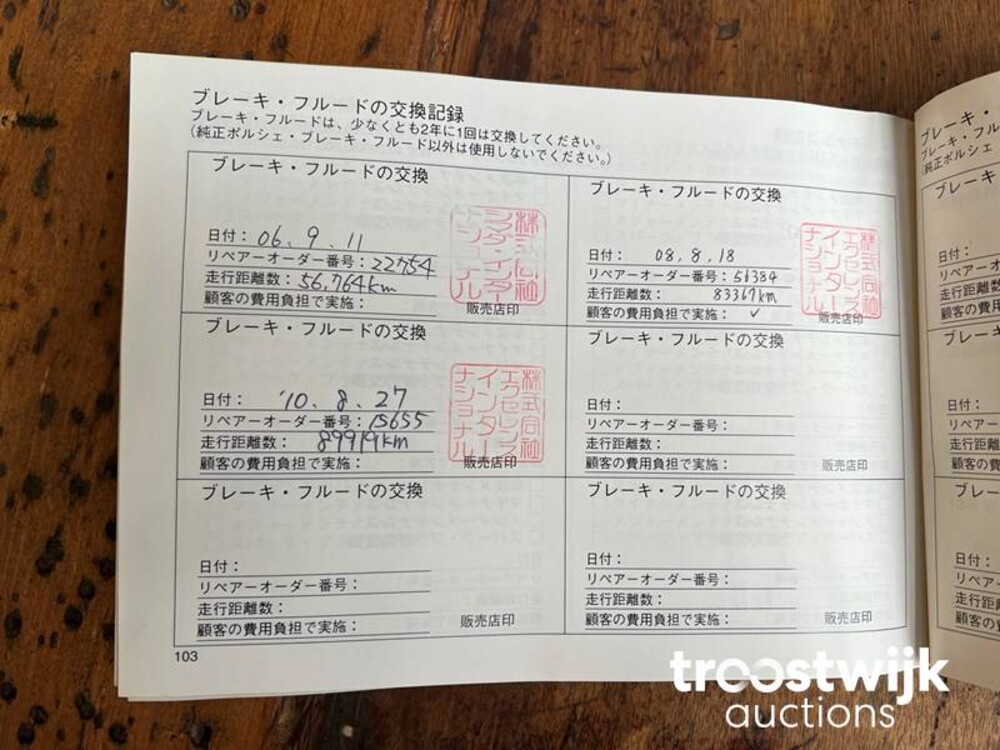 ブレーキ・フルードの交換記録
ブレーキ・フルードは、少なくとも2年に1回は交換してください。
(純正ポルシェ・ブレーキ・フルード以外は使用しないでください。)
ブレーキ・フルードの交換
日付: 06. 9. 11
リペアーオーダー番号: 22754
走行距離数: 56,764km
顧客の費用負担で実施:
販売店印
ブレーキ・フルードの交換
日付: 08. 8. 18
リペアーオーダー番号: 56384
走行距離数: 83367km
顧客の費用負担で実施: ✓
株式会社
エクセレンス
インター
ナショナル
販売店印
ブレーキ・フルードの交換
日付: '10. 8. 27
リペアーオーダー番号: 15655
走行距離数: 89919km
顧客の費用負担で実施:
株式会社
エクセレンス
インター
ナショナル
販売店印
ブレーキ・フルードの交換
日付:
リペアーオーダー番号:
走行距離数:
顧客の費用負担で実施:
販売店印
ブレーキ・フルードの交換
日付:
リペアーオーダー番号:
走行距離数:
顧客の費用負担で実施:
販売店印
ブレーキ・フルードの交換
日付:
リペアーオーダー番号:
走行距離数:
顧客の費用負担で実施:
販売店印
103
ブレーキ・
ブレーキ・フル
(純正ポルシェ
ブレーキ
日付:
リペアーオ
走行距離
顧客の費
ブレー
日付:
リペアー
走行距
顧客の
ブレー
日付:
リペアー
走行距
顧客の
troostwijk
auctions